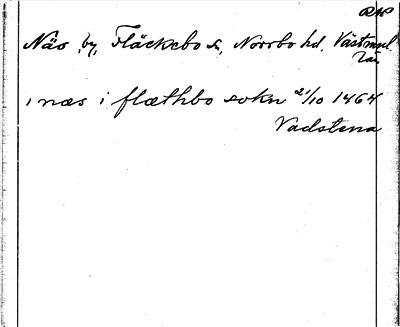 RAP
Näs, by, Fläckebo s., Norrbo hd, Västmanl.
län
i næs i flæthbo sokn 21/10 1464
Vadstena